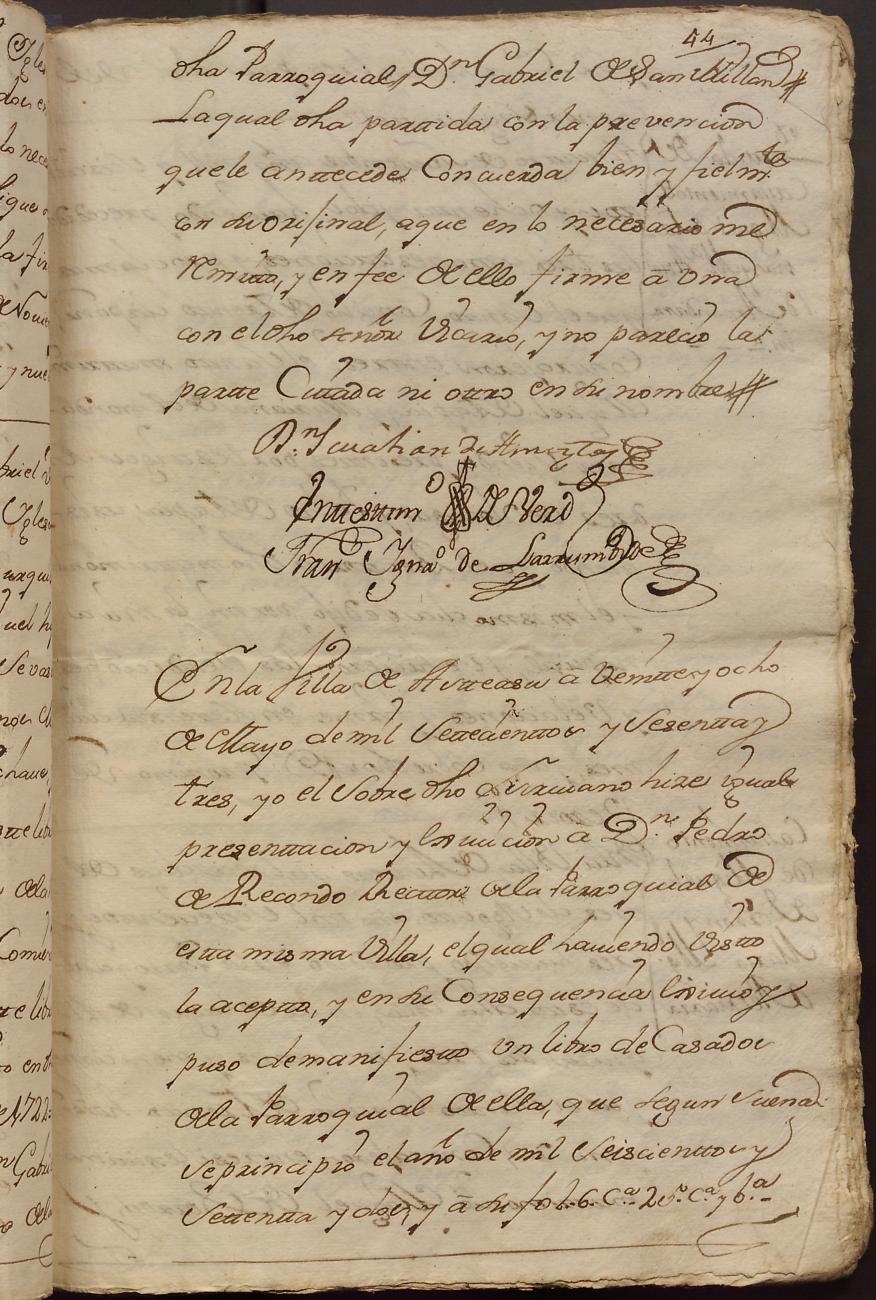 44
dha Parroquial, Dn Gabriel de Sanmillan
La qual dha partida con la prevencion
que le anttecede Concuerda bien y fielmte
con su orijinal, aque en lo necesario me
remitto, y en fee de ello firme a una
con el dho señor Vicario, y no parecio la
partte Cittada ni ottro en su nombre
Dn
Inttesttim o de Verd
Franco Ignao de Larrumbide
En la Villa de Hernani a Veintte y ocho
de Mayo de mil Settecienttos y Sesentta y
tres, yo el Sobre dho Escrivano hize igual
presenttacion y Cittacion a Dn Pedro
de Recondo Rector de la Parroquial de
estta misma Villa, el qual haviendo Vistto
la aceptto, y en su Consequencia exivio y
puso de manifiestto un libro de Casados
de la Parroquial de ella, que segun suena
se principio el año de mil Seiscienttos y
Settentta y dos, y a su fol. 6. Ca 2 Ca y ba
briel
Igles
Comu
te lib
1722
n Gabri
dela